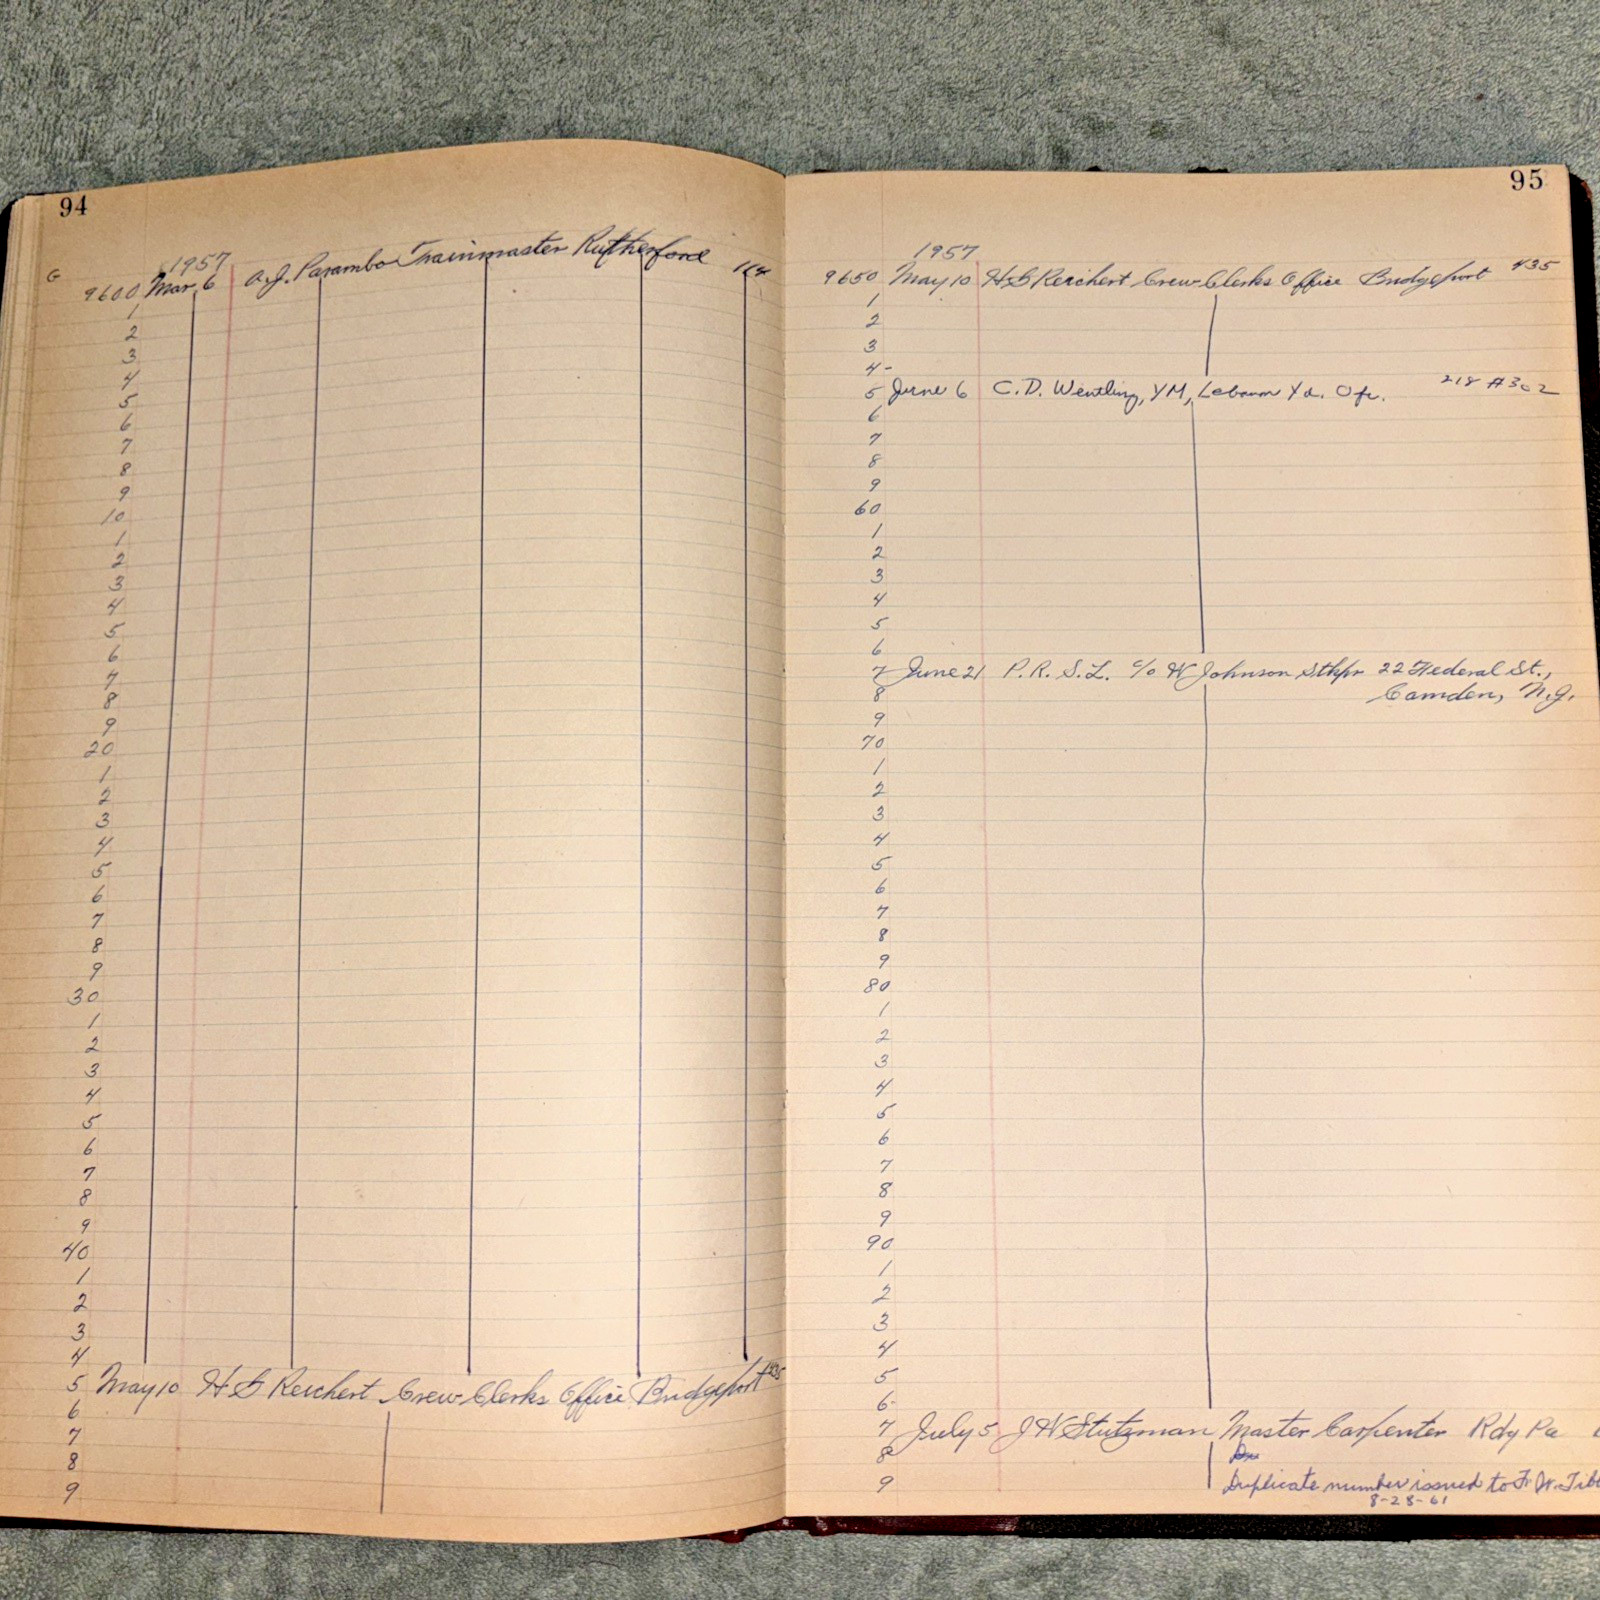 94
1957
G
9600 Mar. 6 A.J. Parambo Trainmaster Rutherford
1
2
3
4
5
6
7
8
9
10
1
2
3
4
5
6
7
8
9
20
1
2
3
4
5
6
7
8
9
30
1
2
3
4
5
6
7
8
9
40
1
2
3
4
5 May 10 H G Reichert Crew Clerks Office Bridgeport 435
6
7
8
9
95
1957
9650 May 10 H G Reichert Crew Clerks Office Bridgeport 435
1
2
3
4-
5 June 6 C.D. Wentling, YM, Lebanon Yd. Ofc. 218 #302
6
7
8
9
60
1
2
3
4
5
6
7 June 21 P.R.S.L. c/o W Johnson Sthpr 22 Federal St.,
8 Camden, N.J.
9
70
1
2
3
4
5
6
7
8
9
80
1
2
3
4
5
6
7
8
9
90
1
2
3
4
5
6
7 July 5 J W Stutzman Master Carpenter Rdg Pa
8
9 Duplicate number issued to F. W.
8-28-61